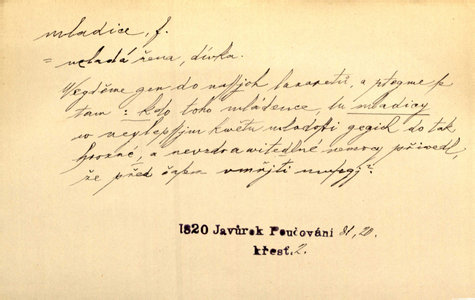 mladice, f.
= mladá žena, dívka.
Negděme gen do nassjch lazaretů, a ptegme se
tam: kdo toho mládence, tu mladicy
w neylepssjm kwětu mladosti gegich do tak
hrozné, a nevzdrawitedlné nemocy přivedl,
že před časem umřjti musegj?
1820 Javůrek Poučování 81, 20.
křesť. 2.